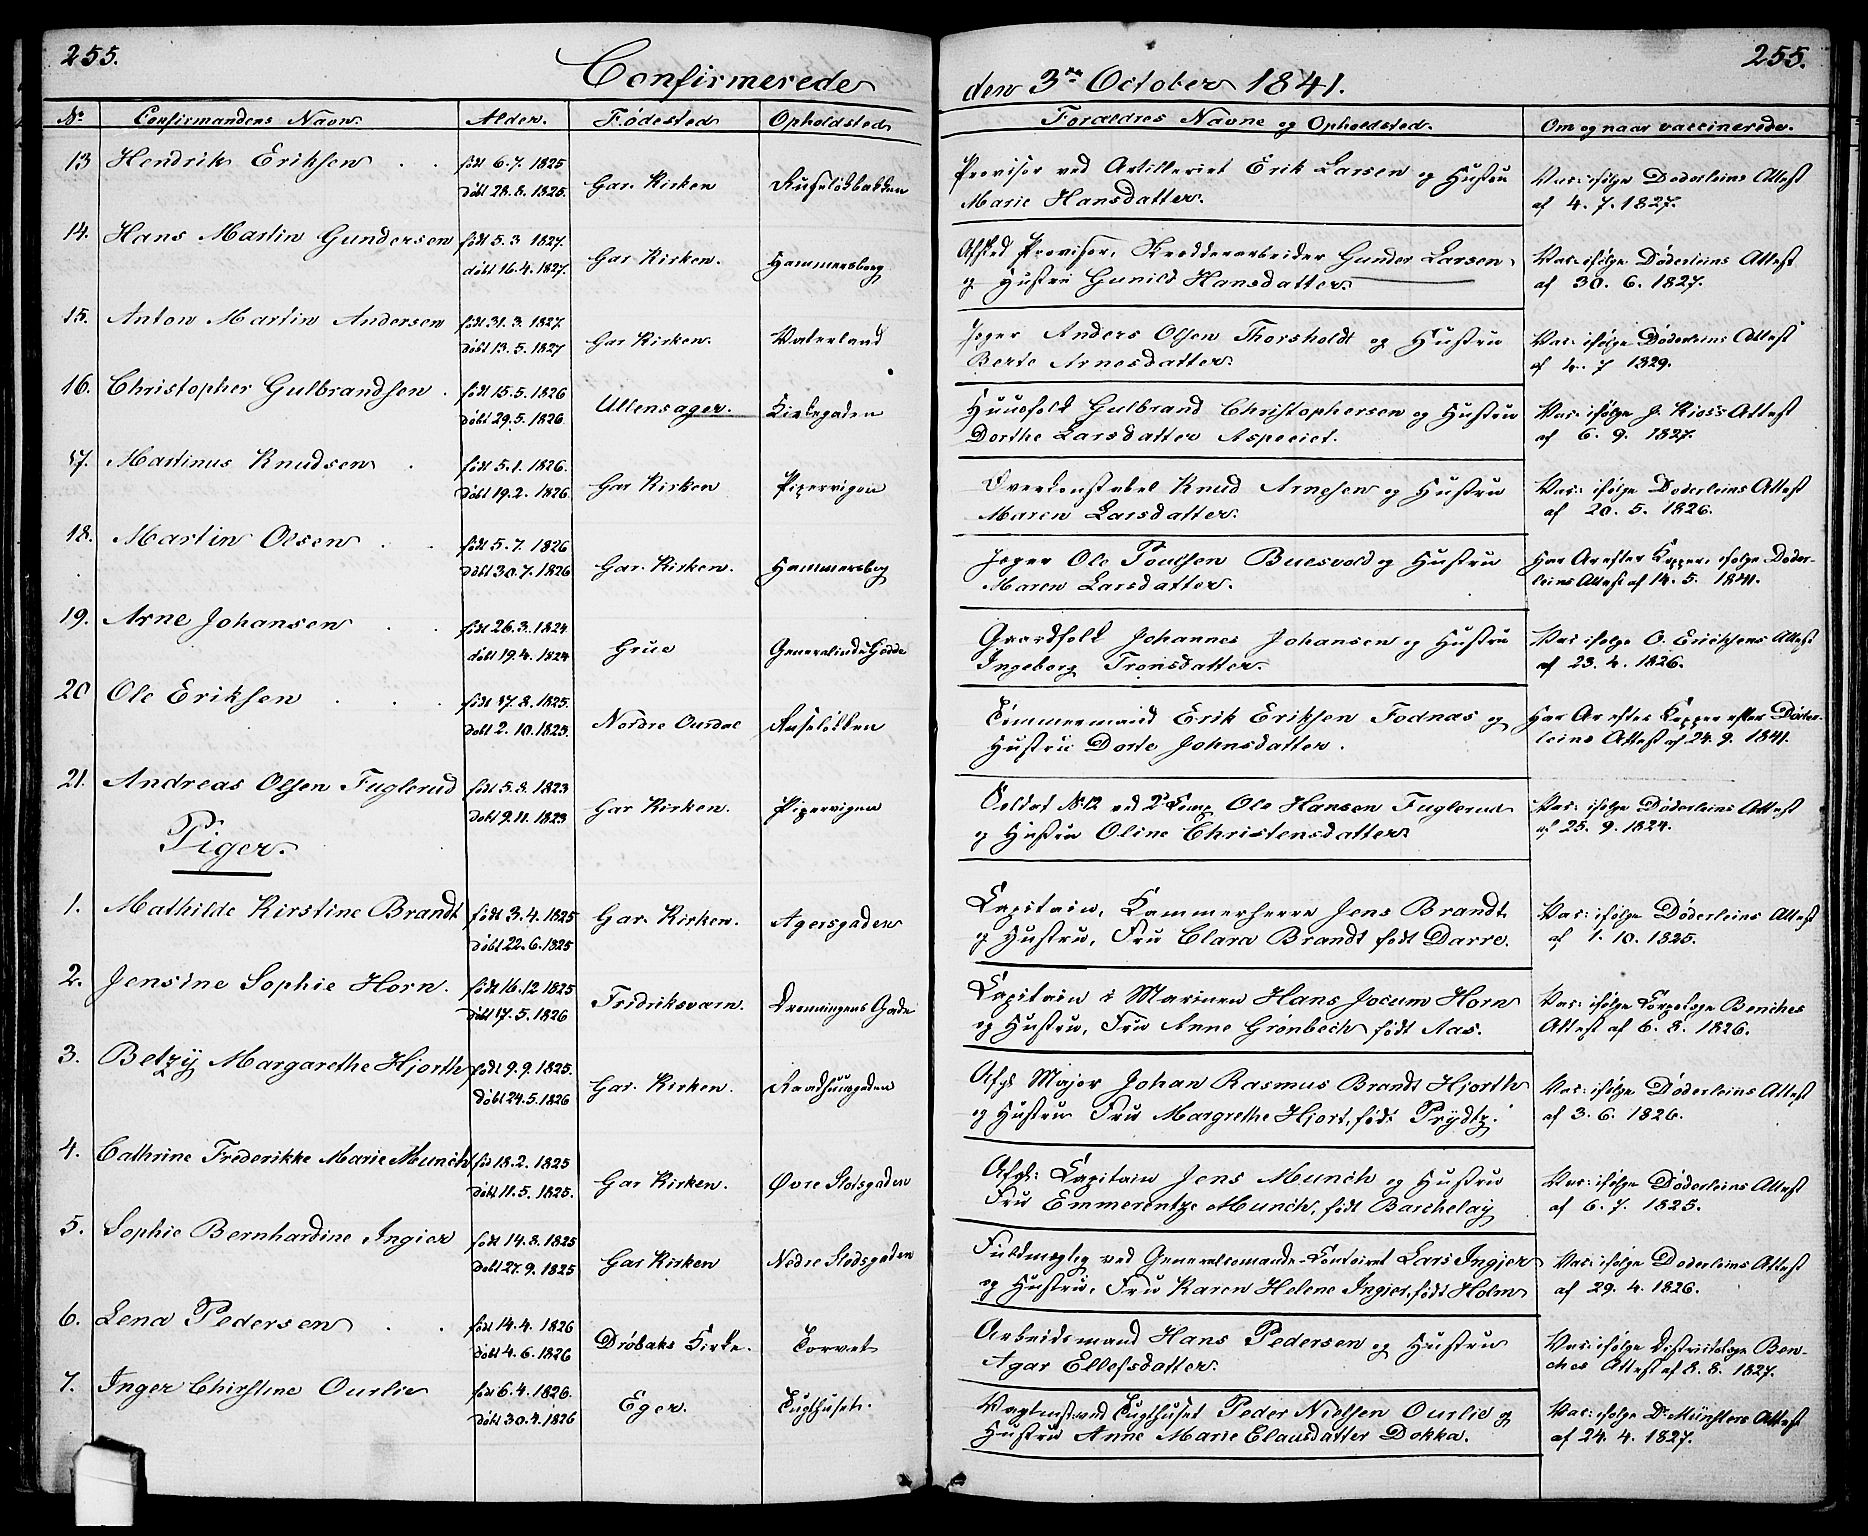 255.
Confirmerede den 3die October 1841.
255.
No Confirmandens Navn. Alder. Fødested Opholdsted Forældres Navne og Opholdsted. Om og naar vaccinerede.
13 Hendrik Eriksen . . født 6.7. 1825 Gar. Kirken Ruseløkbakken Provisor ved Artilleriet Erik Larsen og Hustru Vac: ifølge Døderleins Attest
døbt 28.8. 1825. Marie Hansdatter. af 4. 7. 1827.
14. Hans Martin Gundersen født 5.3 1827. Gar Kirken. Hammersborg Afsked Provisor, Gunder Larsen Vac: ifølge Døderleins Attest
døbt 16.4. 1827. og Hustru Gunild Hansdatter. af 30. 6. 1827.
15. Anton Martin Andersen født 31. 3. 1827. Gar Kirken. Vaterland Jæger Anders Olsen Thorsholdt og Hustru Vac: ifølge Døderleins Attest
døbt 13. 5. 1827 Berte Arnesdatter. af 4. 7 1829.
16. Christopher Gulbrandsen . født 15.5. 1826 Ullensager. Kirkegaden Huusfolk Gulbrand Christophersen og Hustru Vac: ifølge J. Kioss Attest
døbt 29.5. 1826 Dorthe Larsdatter Aspeeiet. af 6. 9. 1827.
17. Martinus Knudsen . født 5.1. 1826. Gar Kirken Pipervigen Overkonstabel Knud Arnesen og Hustru Vac: ifølge Døderleins Attest
døbt 19.2. 1826 Maren Larsdatter. af 20. 5. 1826.
18. Martin Olsen . . født 5.7. 1826 Gar. Kirken. Hammersbog Jæger Ole Poulsen Buesvold og Hustru Har Ar efter Kopper, ifølge Døder-
døbt 30.7. 1826 Maren Larsdatter. leins Attest af 14. 5. 1841.
19. Arne Johansen . . født 26.3. 1824 Grue Generalinde Hodde Gaardfolk Johannes Johansen og Hustru Vac ifølge O. Erichsens Attest
døbt 19.4. 1824 Ingeborg Tronsdatter. af 23. 4. 1826.
20 Ole Eriksen . . . født 17.8. 1825. Nordre Ourdal Ruseløkken Tømmermand Erik Eriksen Fodnas og Har Ar efter Kopper efter Døder-
døbt 2. 10. 1825. Hustru Dorte Johnsdatter. leins Attest af 24. 9. 1841.
21. Andreas Olsen Fuglerud født 5.8. 1823 Gar Kirken. Pipervigen Soldat No 12 ved 2d Comp. Ole Hansen Fuglerud Vac: ifølge Døderleins Attest
døbt 9.11. 1823 og Hustru Oline Christensdatter. af 25. 9. 1824.
Piger.
1. Mathilde Kirstine Brandt født 3.4. 1825 Gar. Kirken. Agersgaden Capitain, Kammerherre Jens Brandt Vac: ifølge Døderleins Attest
døbt 22.6. 1825 og Hustru, Fru Clara Brandt født Darre. af 1. 10. 1825.
2. Jensine Sophie Horn. født 16.12 1825 Fridriksværn. Dronningens Gade Capitain i Marinen Hans Jocum Horn Vac: ifølge Corpslæge Benches
døbt 17.5. 1826 og Hustru, Fru Anne Grønbech født Aas. Attest af 6. 8. 1826.
3. Betzy Margarethe Hjorth født 9.9. 1825. Gar. Kirken. Raadhuusgaden Afgk Major Johan Rasmus Brandt Hjorth Vac: ifølge Døderleins Attest
døbt 24.5. 1826 og Hustru Fru Margrethe Hjort, født Prydtz. af 3. 6. 1826.
4. Cathrine Frederikke Marie Munch fød 18.2. 1825 Gar Kirken. Øvre Slotsgaden Afgk: Capitain Jens Munch og Hustru Vac: ifølge Døderleins Attest
døbt 11.5. 1825. Fru Emmerentze Munch, født Barchelay af 6. 7. 1825.
5. Sophie Bernhardine Ingier født 14.8. 1825 Gar Kirken Nedre Slodsgaden Fuldmægtig ved Generalcomando-Contoiret Lars Ingier Vac: ifølge Døderleins Attest
døbt 27.9. 1825 og Hustru, Fru Karen Helene Ingier, født Holm af 29. 4. 1826.
6. Lena Pedersen . . født 14.4. 1826 Drøbaks Kirke. Torvet Arbeidsmand Hans Pedersen og Hustru Vac: ifølge Districtslæge Ben-
døbt 4.6. 1826 Agar Ellefsdatter. ches Attest af 8. 8. 1827.
7. Inger Chirstine Ourlie fød 6.4. 1826. Eger. Tugthuset. Vagtmst: ved Tugthuset Peder Nielsen Ourlie og Vac: ifølge Dr Münsters Attest
døbt 30.4. 1826 Hustru Anne Marie Clausdatter Dokka. af 24. 4. 1827.